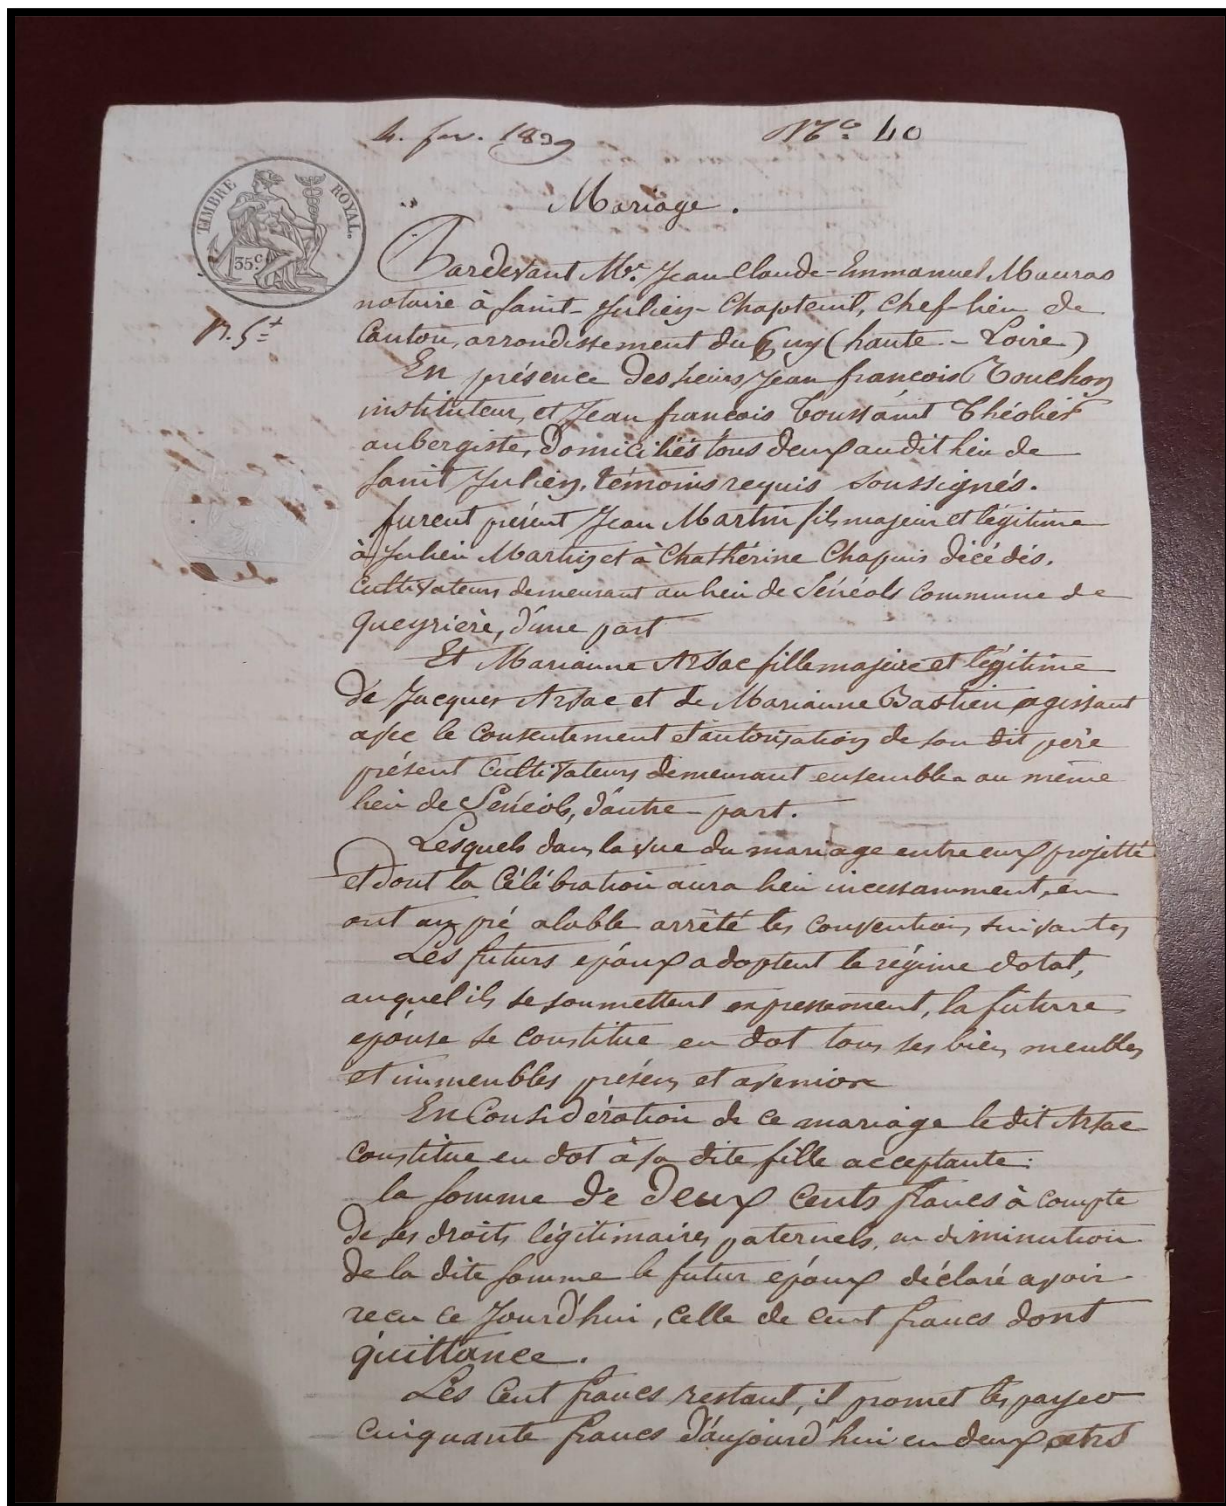 4. fev. 1839
N.° 40
Mariage.
TIMBRE ROYAL.
35 c.
Pardevant M.e Jean Claude-Emmanuel Mauras
notaire à Saint-Julien-Chapteuil, chef lieu de
Canton, arrondissement du Puy (haute-Loire)
En présence des sieurs Jean françois Touchon
instituteur, et Jean françois Toussaint Théolier
aubergiste, Domiciliés tous deux audit lieu de
Saint Julien, témoins requis soussignés.
furent présent Jean Martin fils majeur et légitime
à Julien Martin et à Chathérine Chapuis décédés.
Cultivateurs demeurant au lieu de Sénéols commune de
queyrière, d'une part
Et Marianne Arsac fille majeure et légitime
De Jacques Arsac et de Marianne Bastien agissant
avec le consentement et autorisation de son dit père
présent cultivateurs demeurant ensemble au même
lieu de Sénéols, d'autre part.
Lesquels dans la vue du mariage entre eux projetté
et dont la célébration aura lieu incessamment, en
ont au pré alable arrêté les conventions suivantes
Les futurs époux adoptent le régime dotal,
auquel ils se soumettent expressement, la future
epouse se constitue en dot tous ses biens meubles
et immeubles présens et avenir
En Considération de ce mariage le dit Arsac
constitue en dot à sa dite fille acceptante:
la somme de Deux cents francs à compte
De ses droits légitimaires paternels, en diminution
de la dite somme le futur époux déclaré avoir
recu ce Jourd'hui, celle de cent francs dont
quittance.
Les Cent francs restant, il promet les payer
cinquante francs d'aujourd'hui en deux